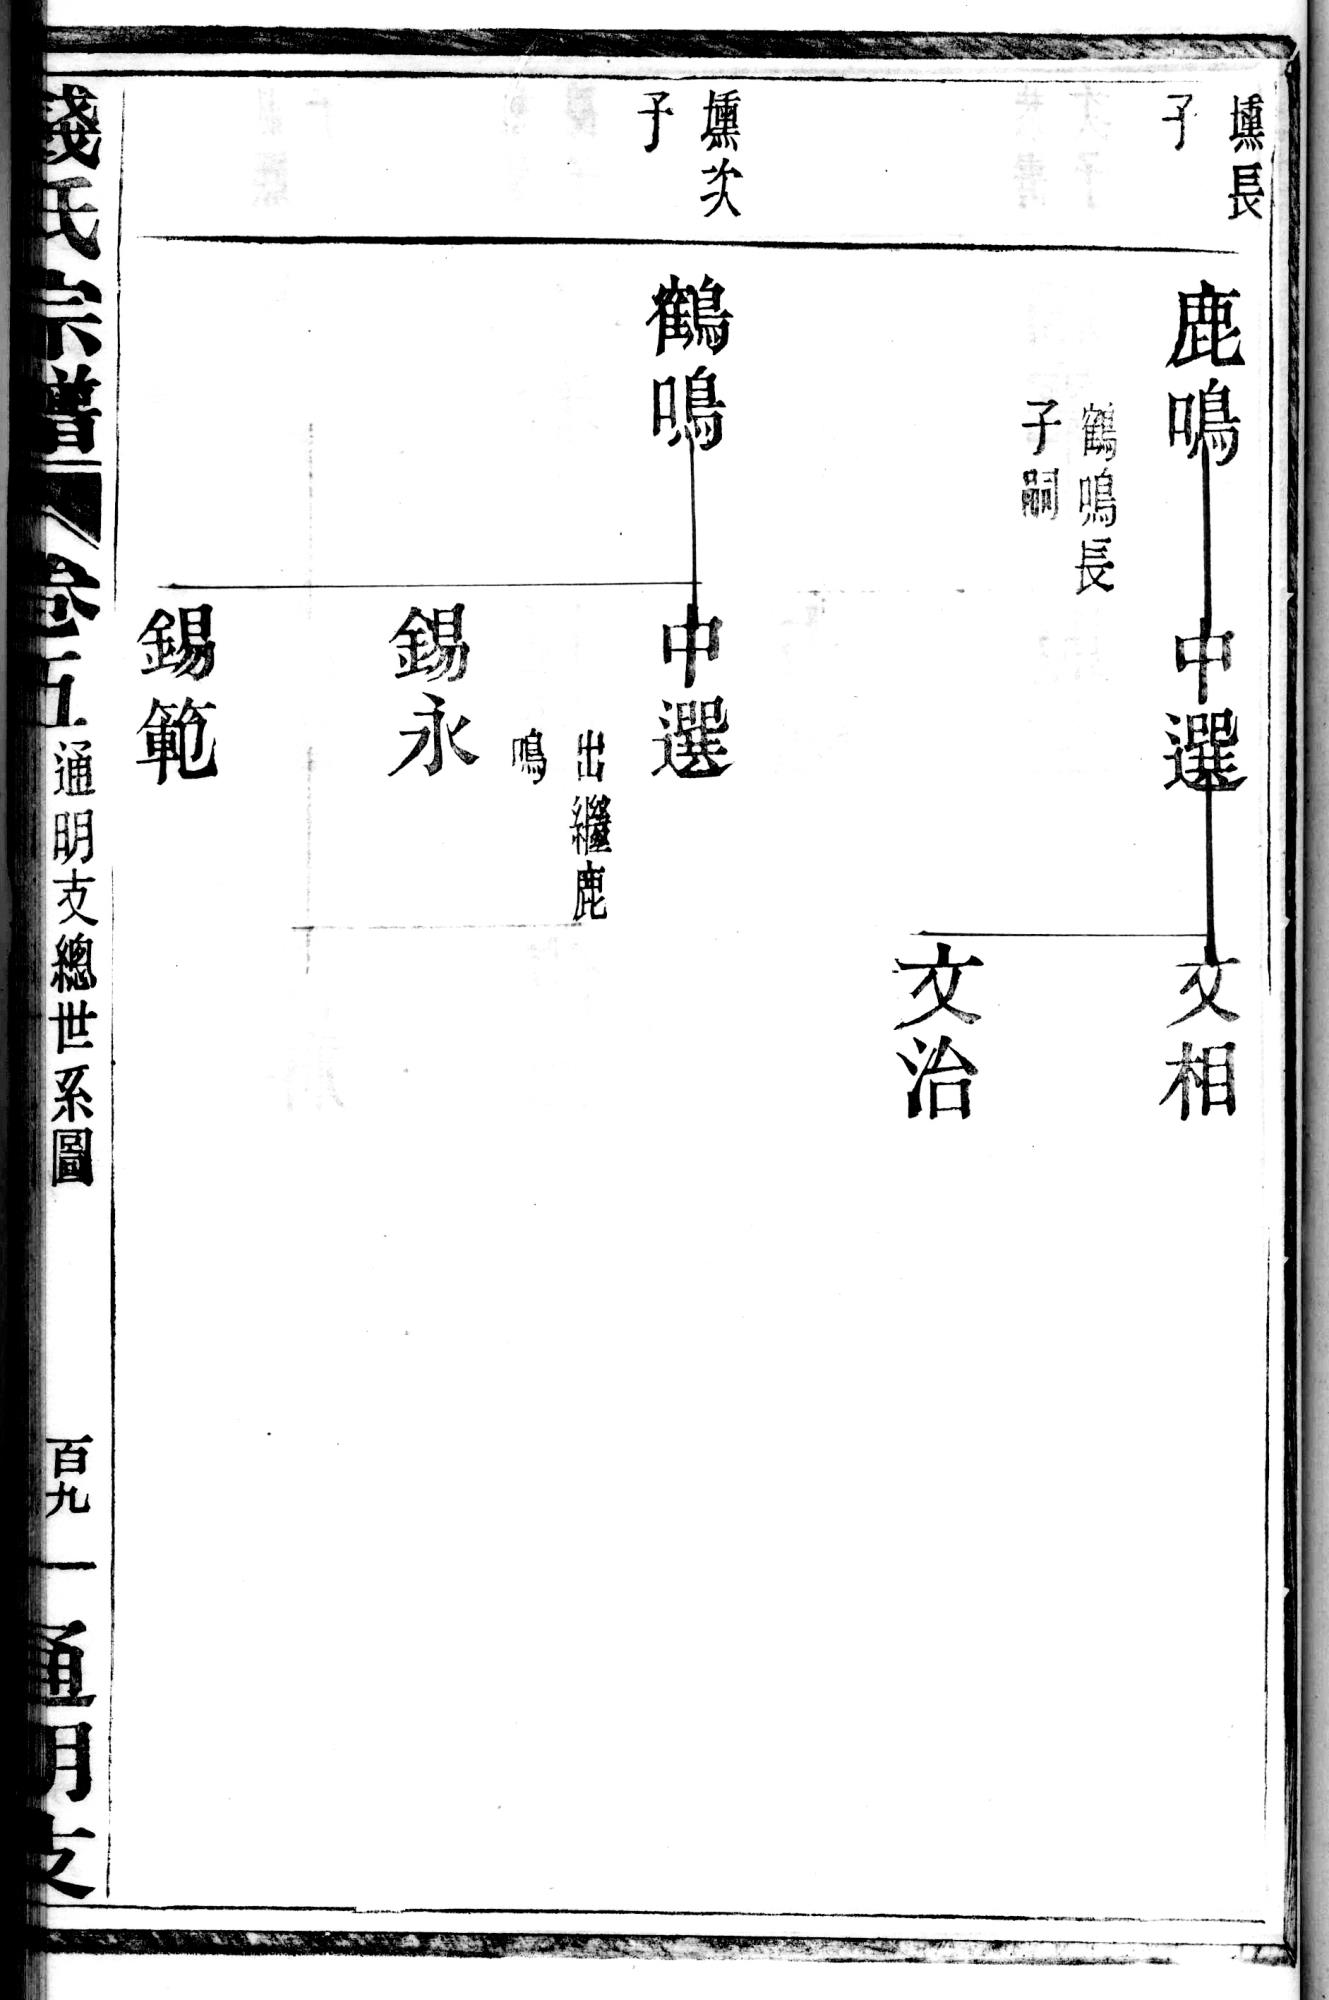 壎長
子
鹿鳴
中選
鶴鳴長
子嗣
文相
文治
壎次
子
鶴鳴
中選
出繼鹿
鳴
錫永
錫範
錢氏宗譜
卷五
通明支總世系圖
百九
一
通明支